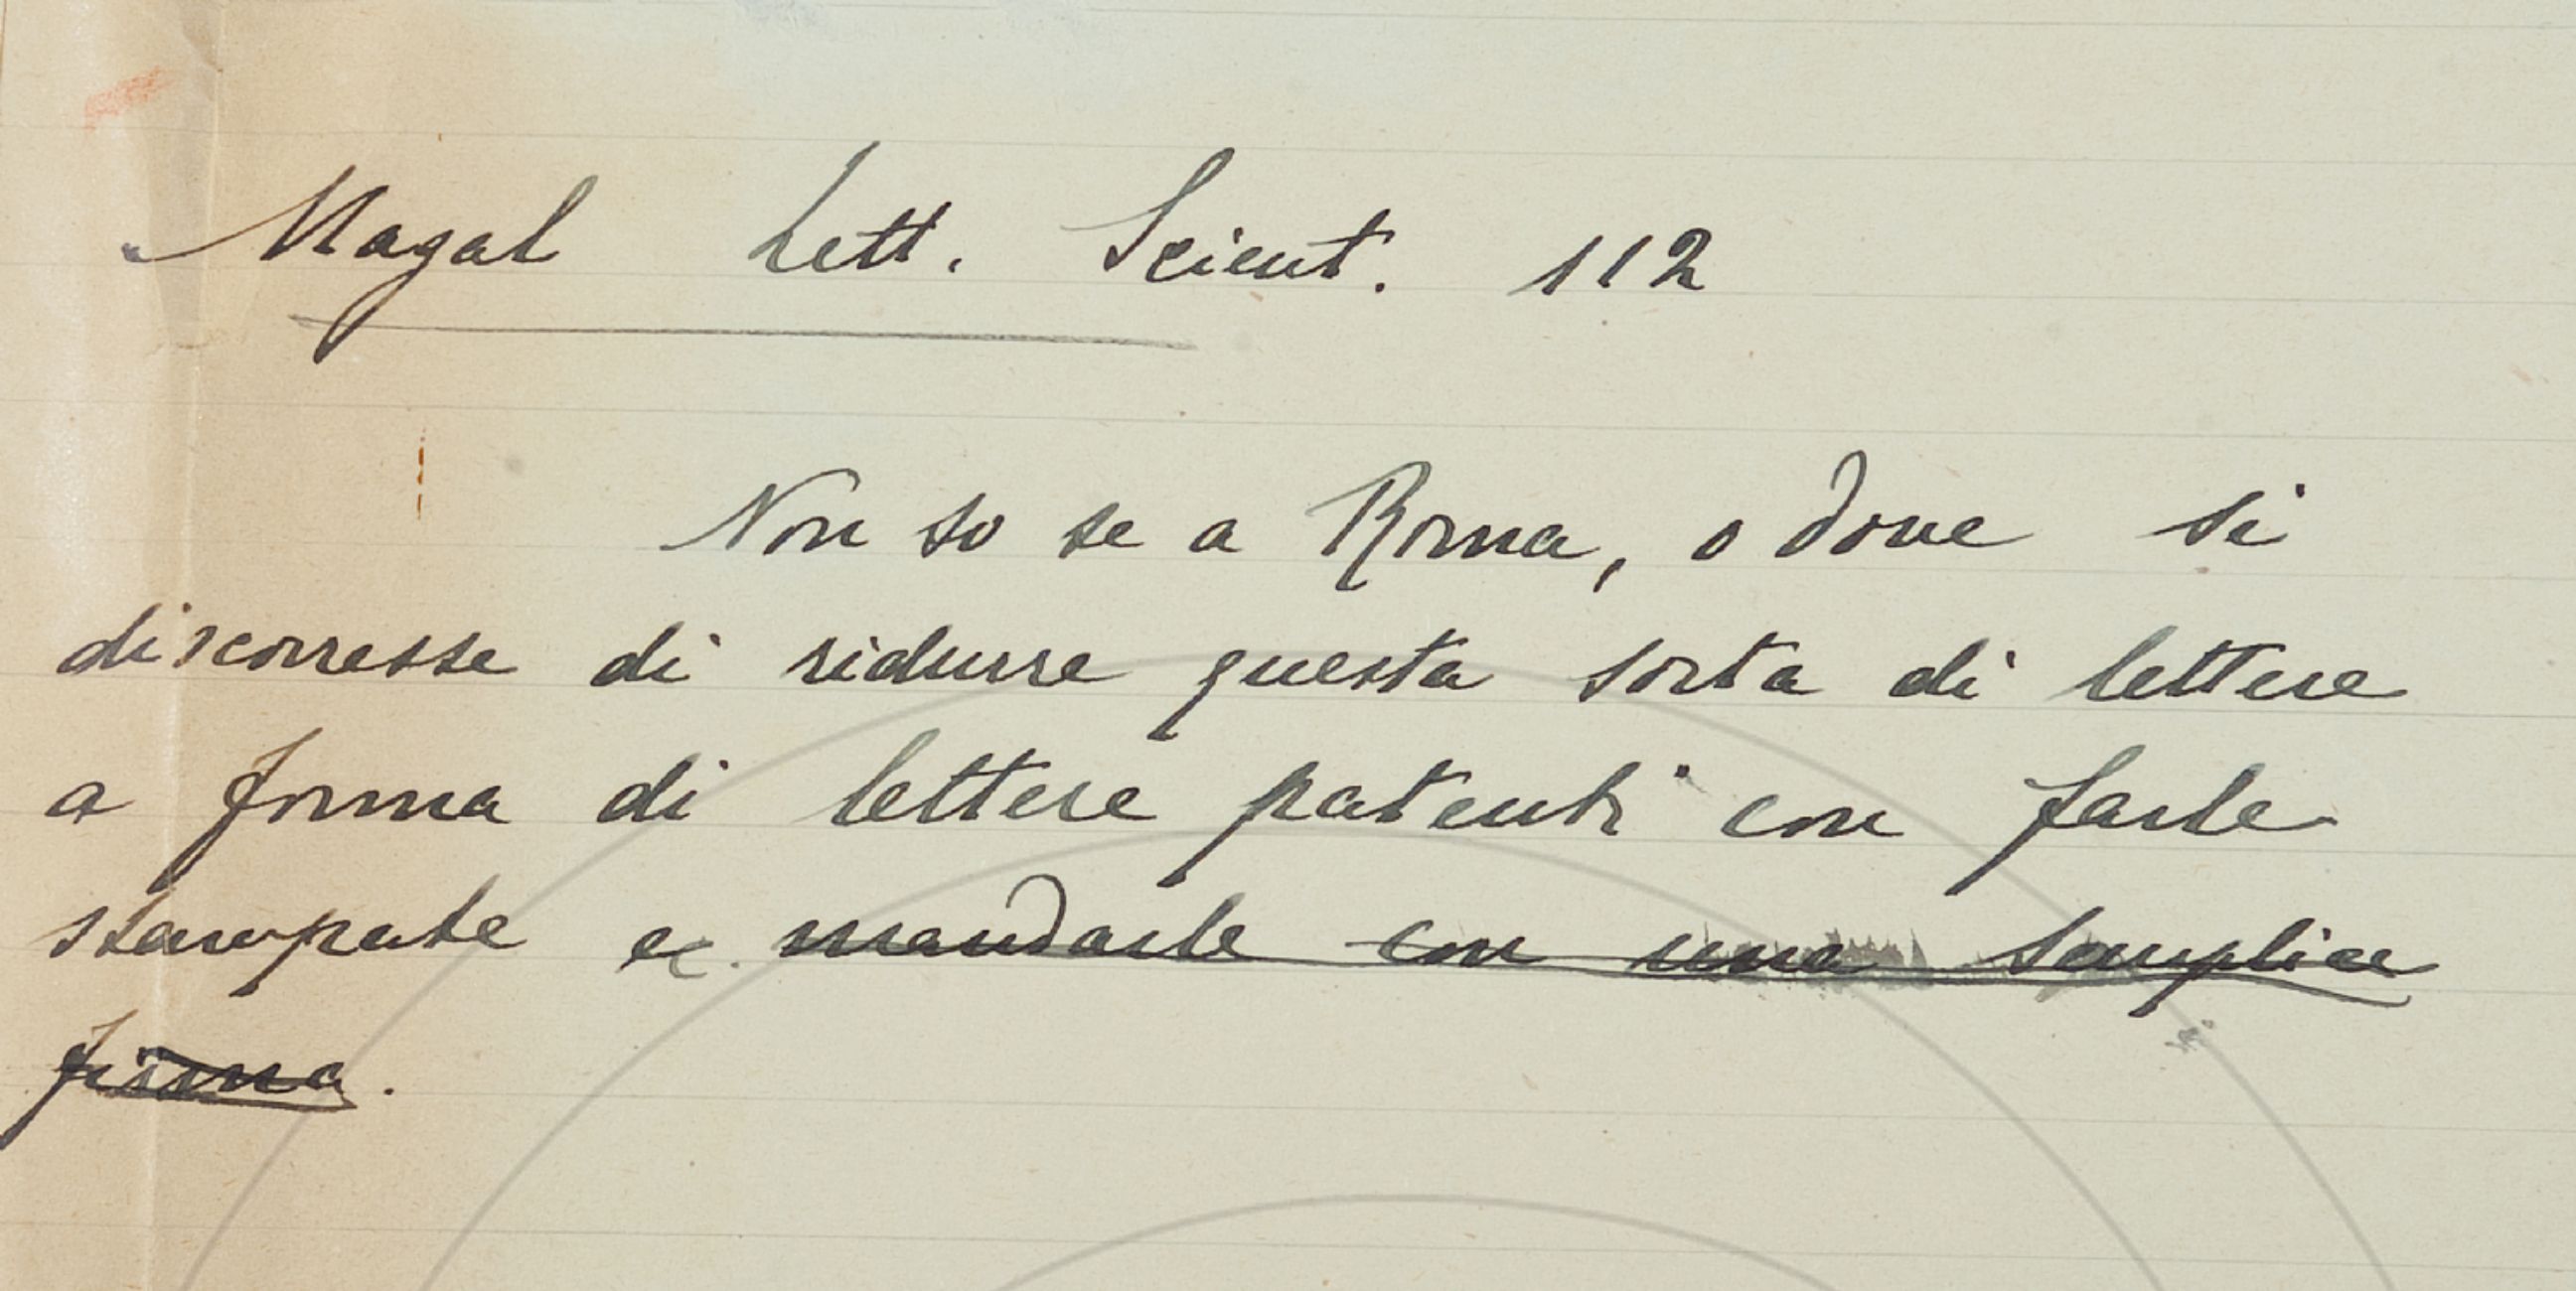 Magal Lett. Scient. 112
Non so se a Roma, o dove si
discorresse di ridurre questa sorta di lettere
a forma di lettere patenti con farle
stampate ec. mandarle con una semplice
firma.